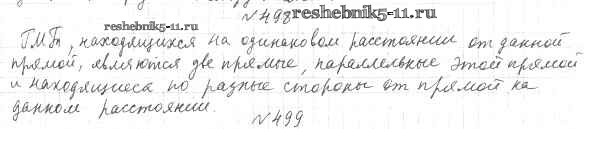 №498
reshebnik5-11.ru
ГМТп, находящихся на одинаковом расстоянии от данной
прямой, являются две прямые, параллельные этой прямой
и находящиеся по разные стороны от прямой на
данном расстоянии.
№499